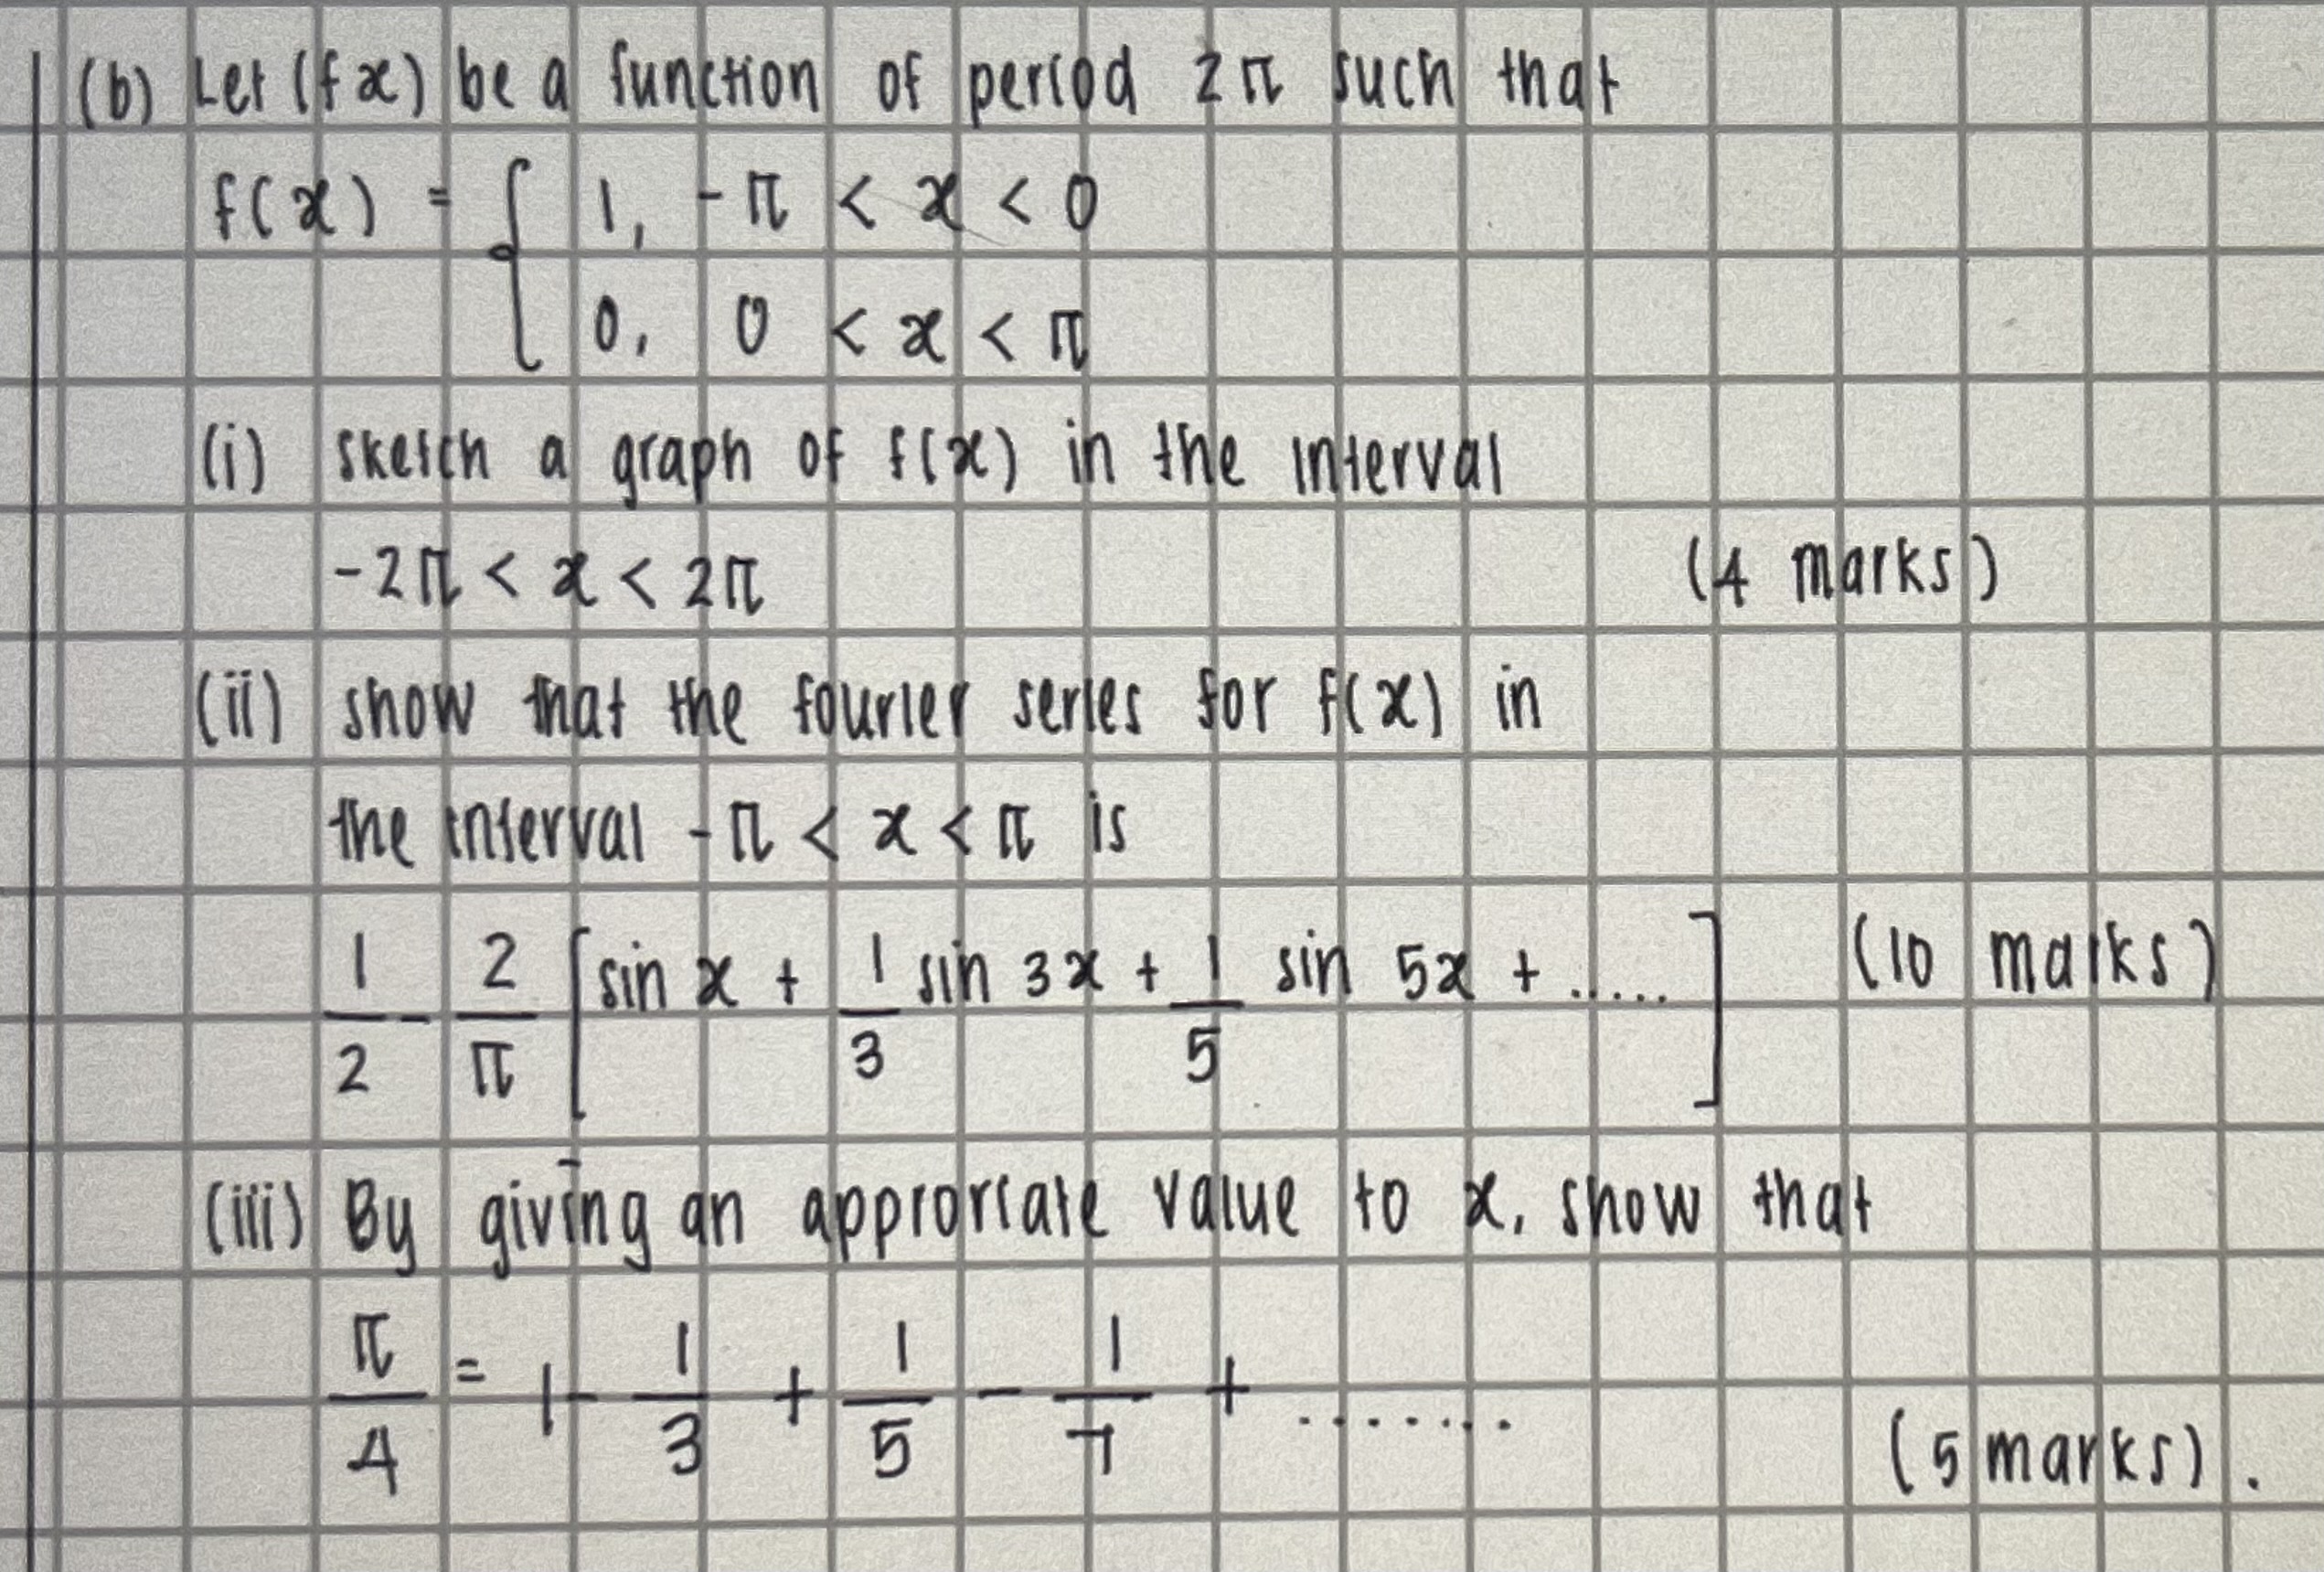 (b) Let (fx) be a function of period 2π such that
f(x) = { 1, -π < x < 0
0, 0 < x < π
(i) sketch a graph of f(x) in the interval
-2π < x < 2π (4 marks)
(ii) show that the fourier series for f(x) in
the interval -π < x < π is
1/2 - 2/π [sin x + 1/3 sin 3x + 1/5 sin 5x + .....] (10 marks)
(iii) By giving an approriate value to x, show that
π/4 = 1 - 1/3 + 1/5 - 1/7 + ........ (5 marks).